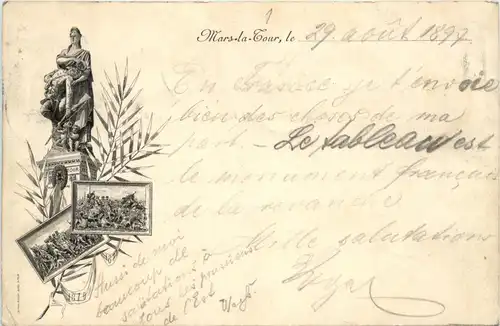 Mars-la-Tour, le 29 août 1897
En France je t'envoie
bien des choses de ma
part - Le tableau est
le monument français
de la revanche
Mille salutations
Aussi de moi
beaucoup de
salutations à
tous les
de l'Est